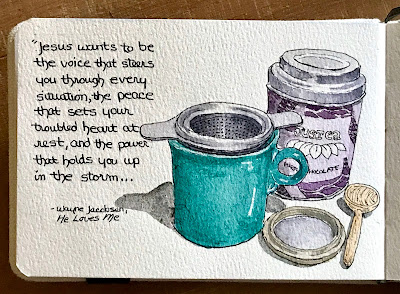 "Jesus wants to be
the voice that steers
you through every
situation, the peace
that sets your
troubled heart at
rest, and the power
that holds you up
in the storm...
- Wayne Jacobsen,
He Loves Me
CHOCOLATE